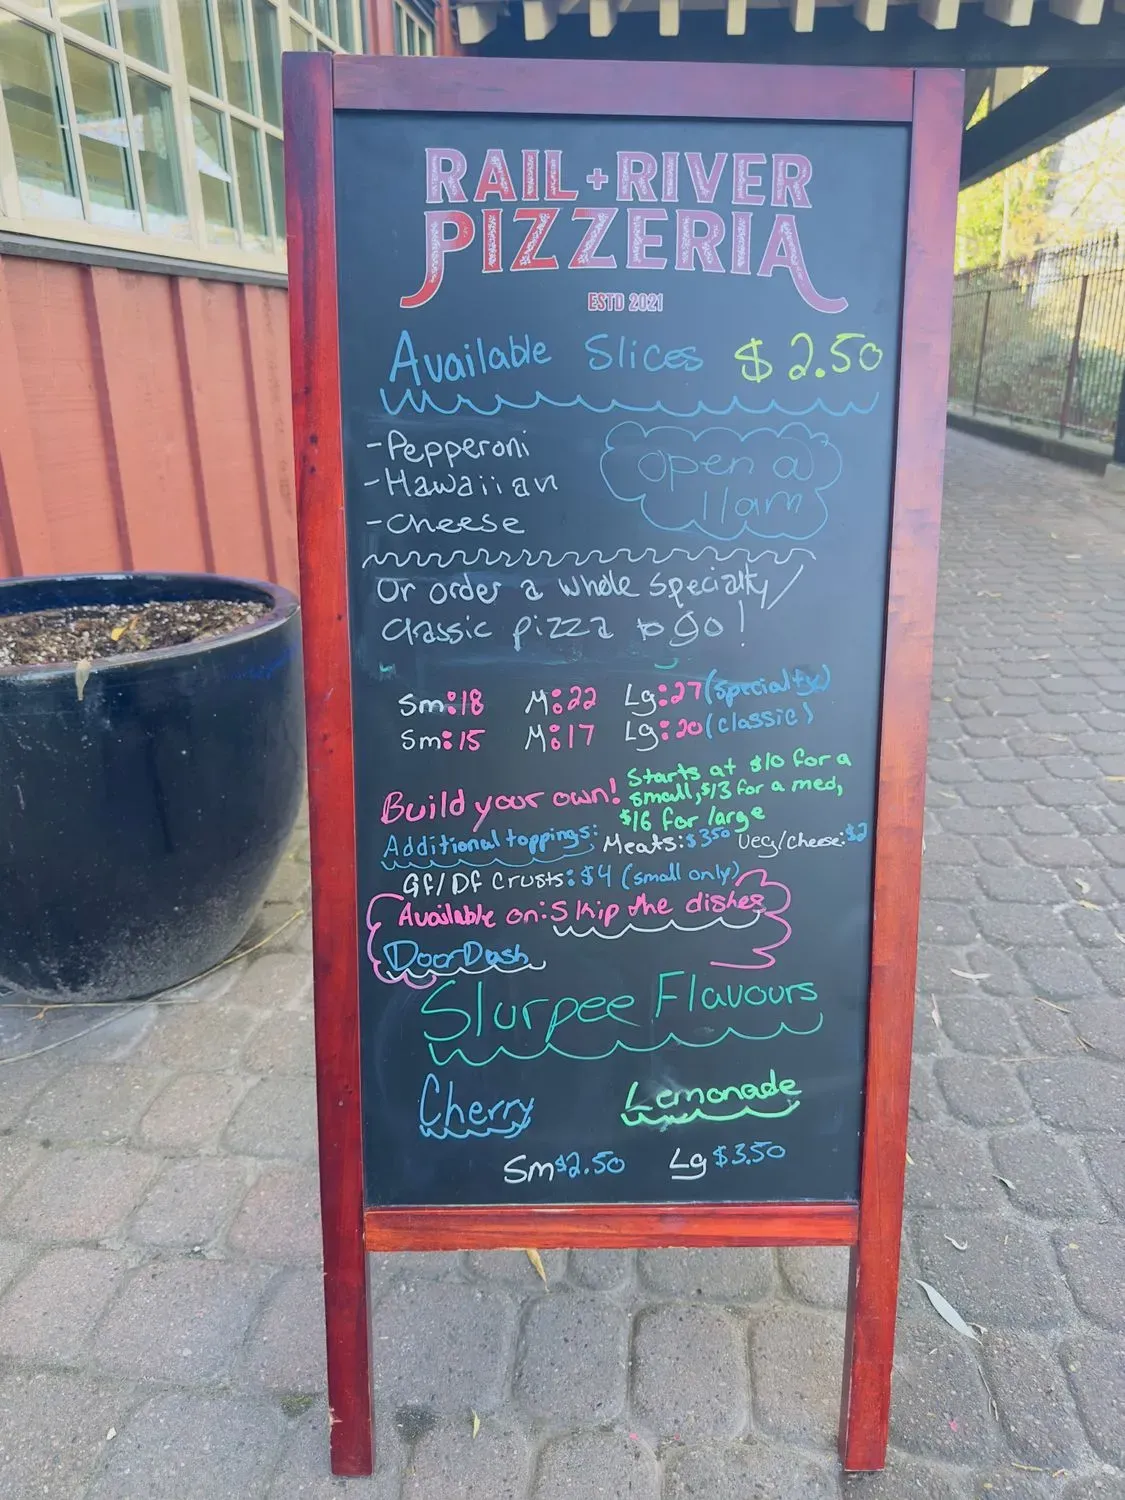 RAIL + RIVER
PIZZERIA
ESTD 2021
Available Slices $2.50
-Pepperoni
-Hawaiian
-cheese
open @
11am
Or order a whole specialty/
classic pizza to go!
Sm:18 M:22 Lg:27 (specialty)
Sm:15 M:17 Lg:20 (classic)
Build your own! Starts at $10 for a
small, $13 for a med,
$16 for large
Additional toppings: Meats: $350 Veg/cheese: $2
GF/DF Crusts: $4 (small only)
Available on: Skip the dishes
DoorDash
Slurpee Flavours
Cherry Lemonade
Sm $2.50 Lg $3.50